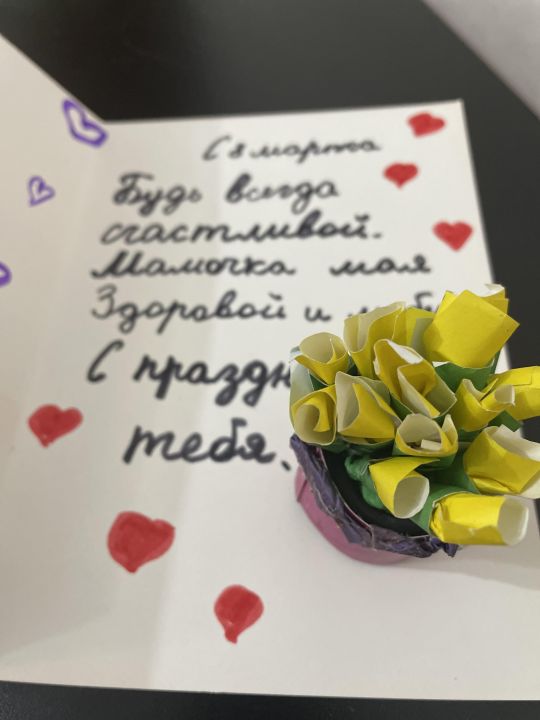 С 8 марта
Будь всегда
счастливой.
Мамочка моя
Здоровой и
С
тебя.